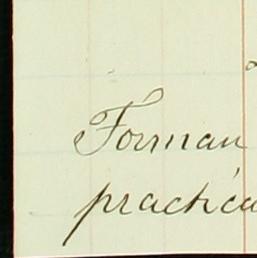 Forman
practica